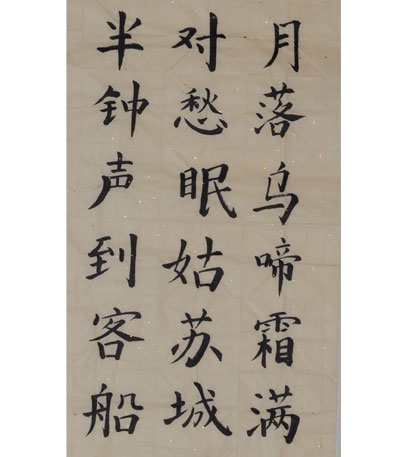 月落乌啼霜满
对愁眠姑苏城
半钟声到客船